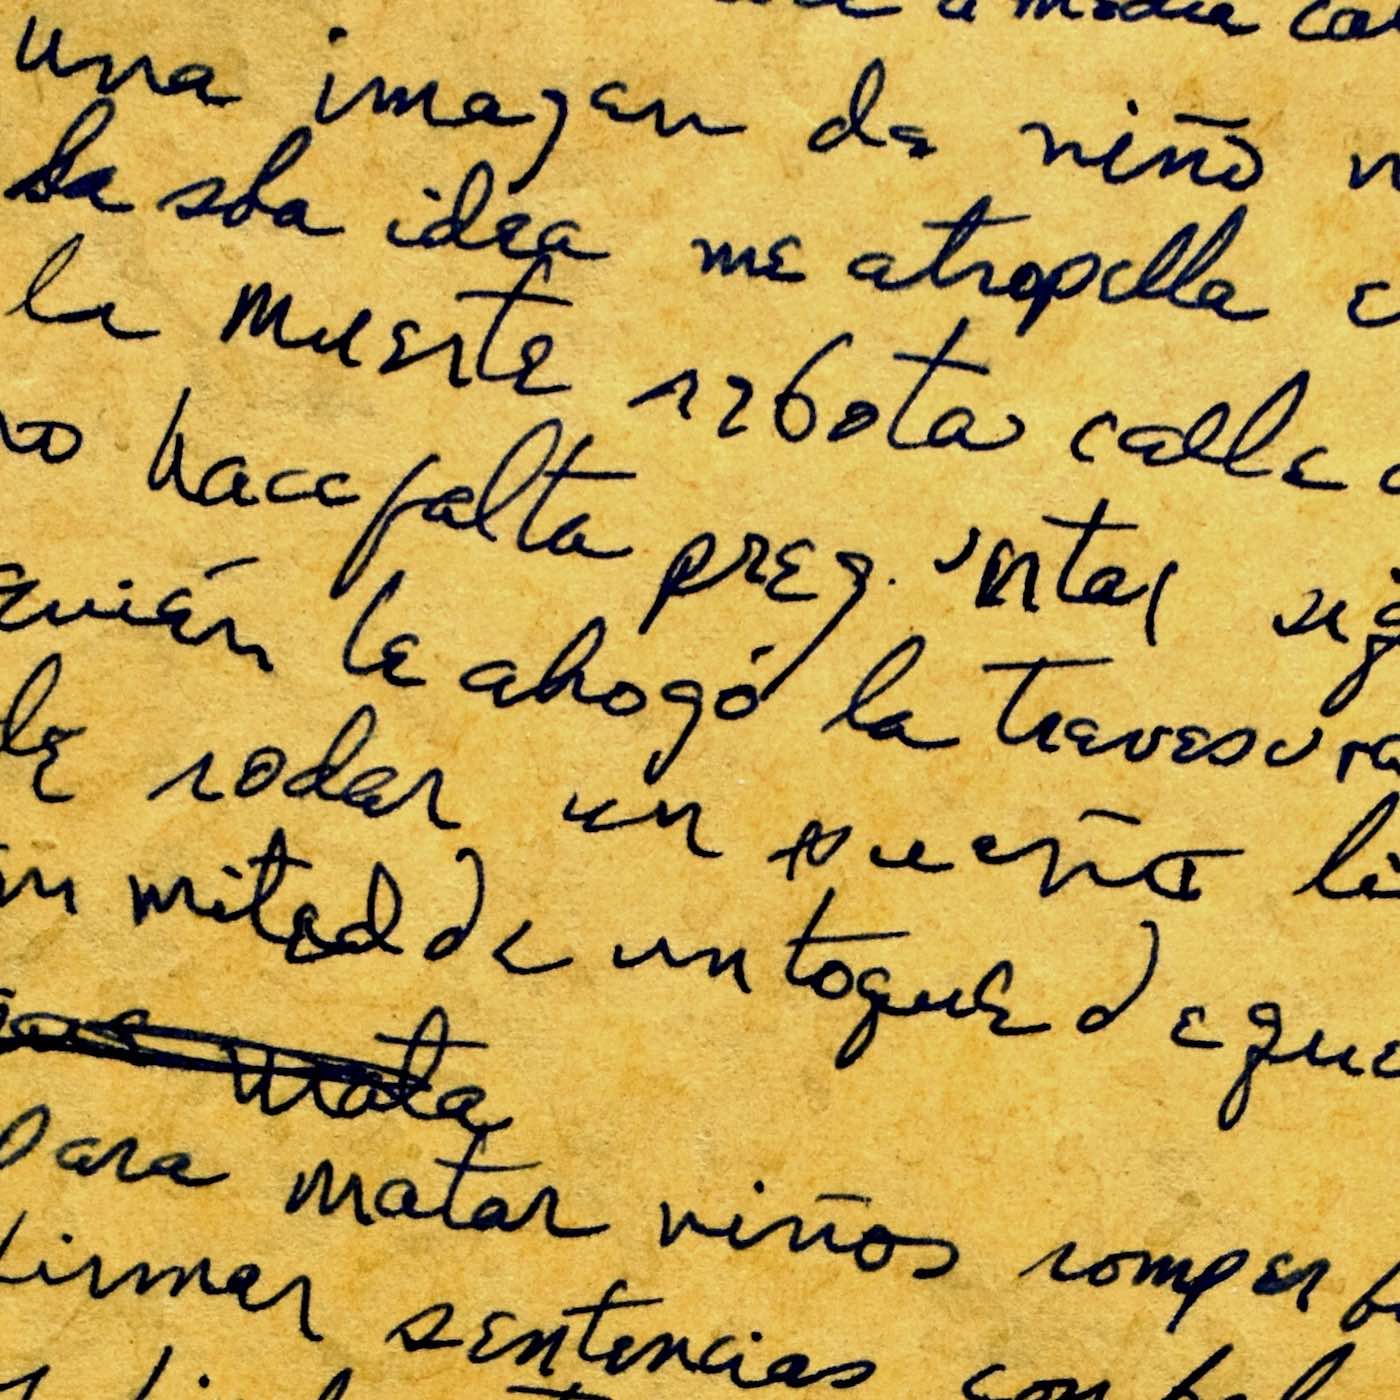 a media
una imagen de niño
la sola idea me atropella
la muerte rebota calle
no hace falta preguntar
quién le ahogó la travesura
de rodar un sueño
en mitad de un toque de que
mata
para matar niños romper
firmar sentencias con